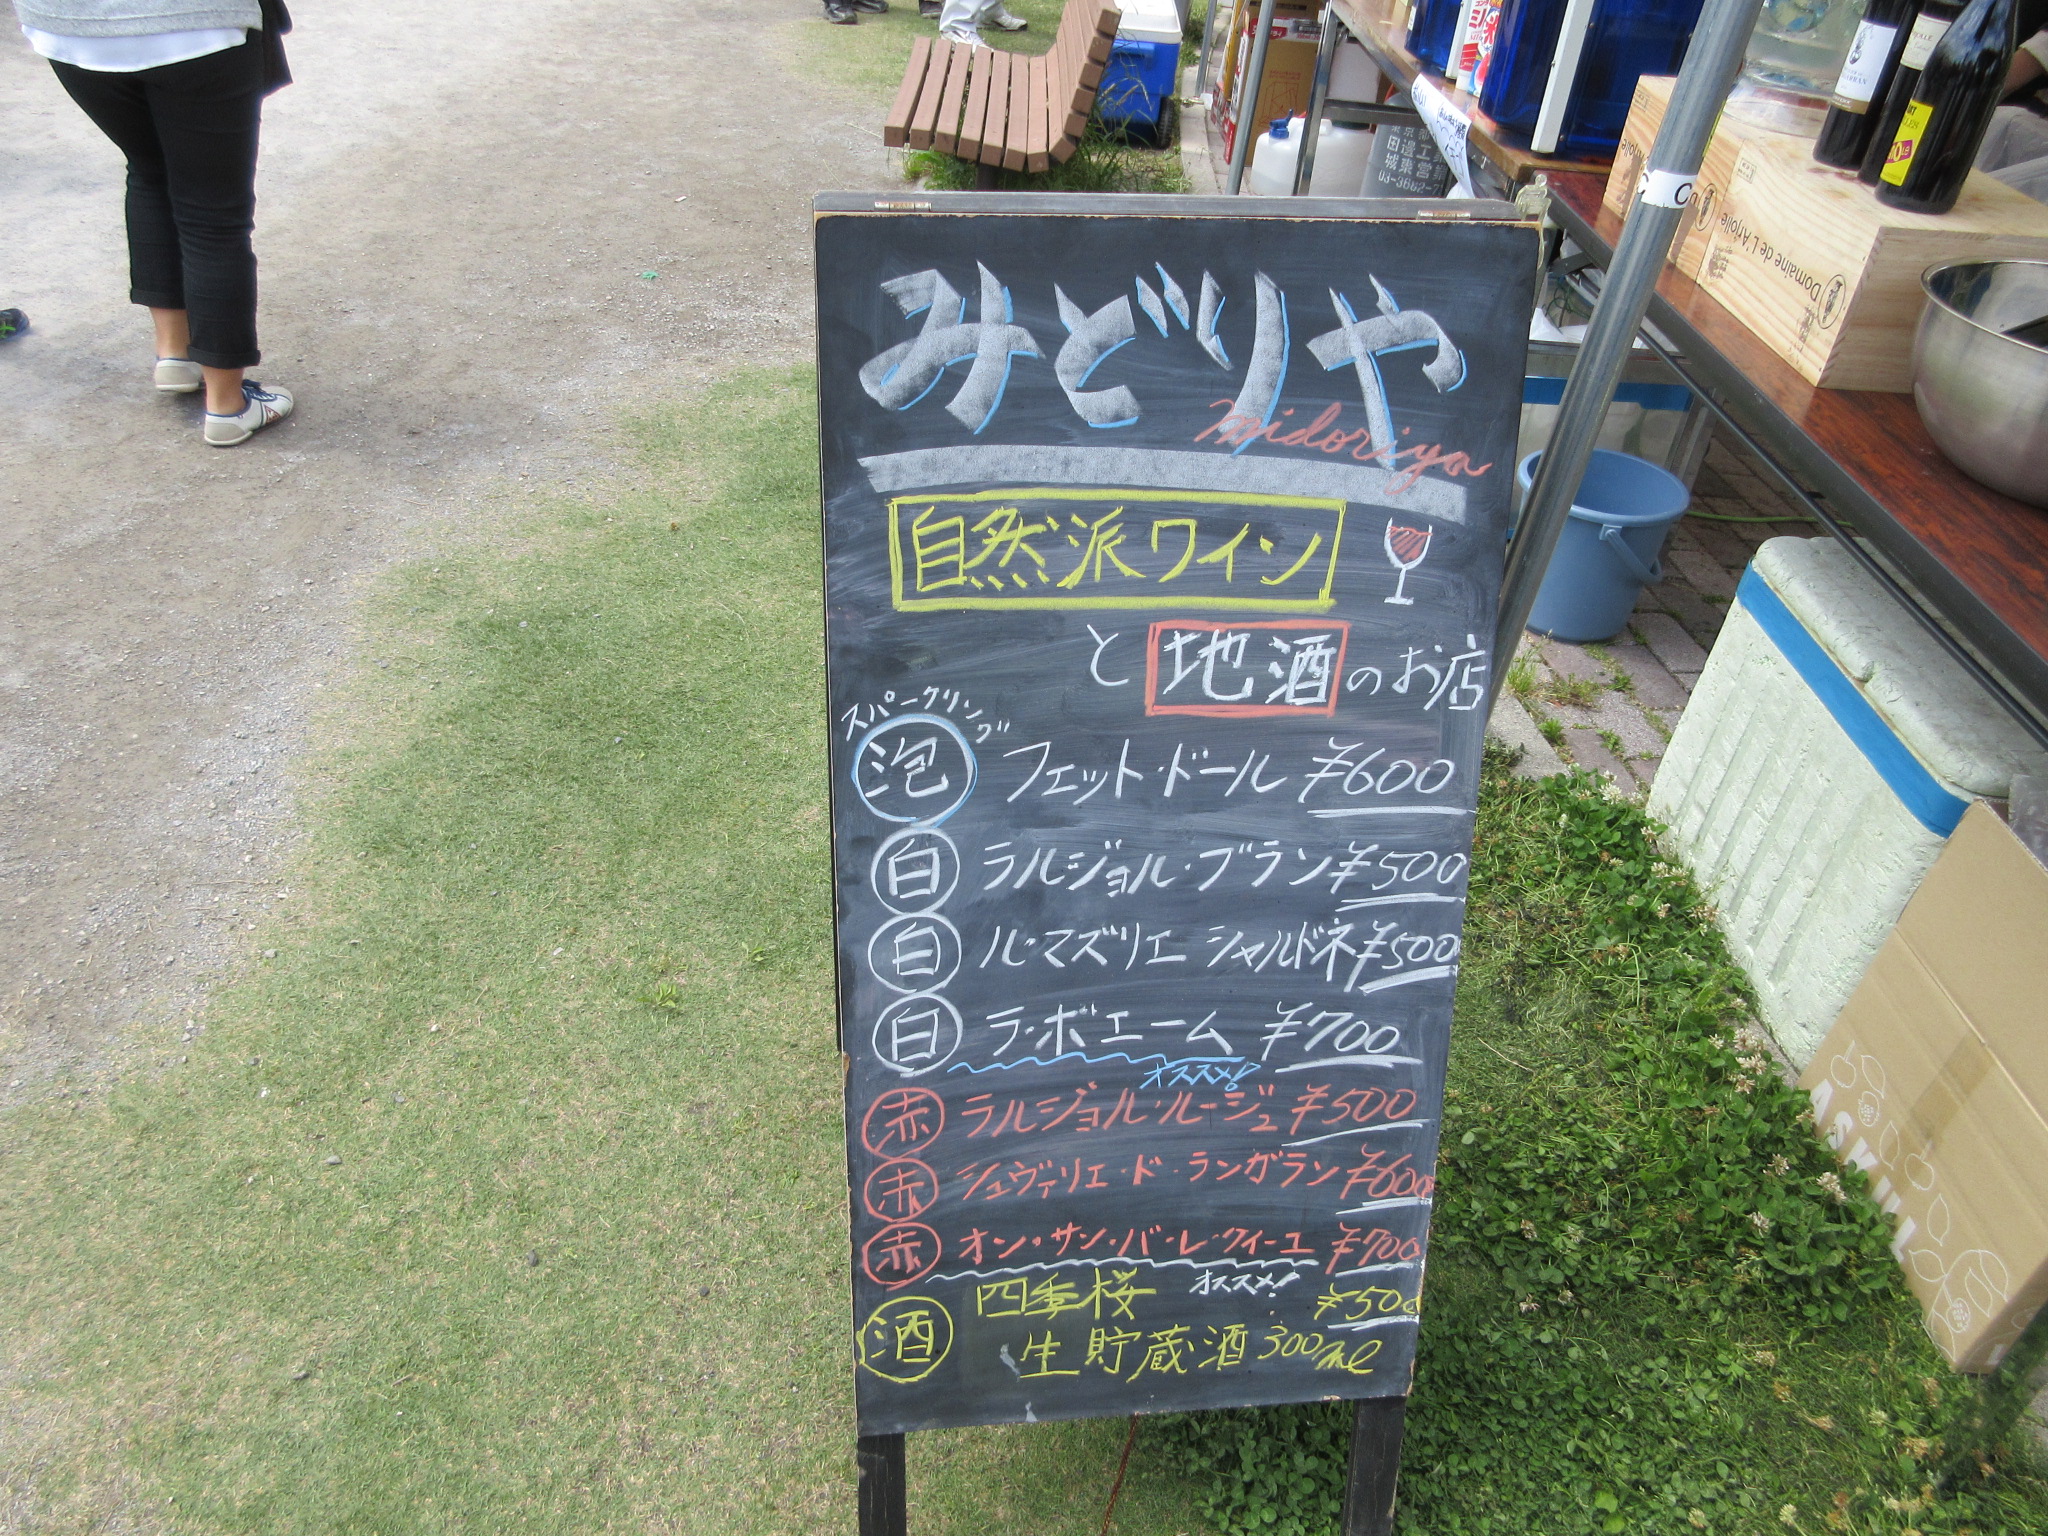 みどりや
midoriya
自然派ワイン
と 地酒 のお店
スパークリング
泡 フェット・ドール ¥600
白 ラルジョル・ブラン ¥500
白 ル・マズリエ シャルドネ ¥500
白 ラ・ボエーム ¥700
オススメ!
赤 ラルジョル・ルージュ ¥500
赤 シュヴァリエ・ド・ランガラン ¥600
赤 オン・サン・バ・レ・クイーユ ¥700
オススメ!
酒 四季桜 ¥500
生貯蔵酒 300ml
Domaine de L'Arjolle
ASKUL